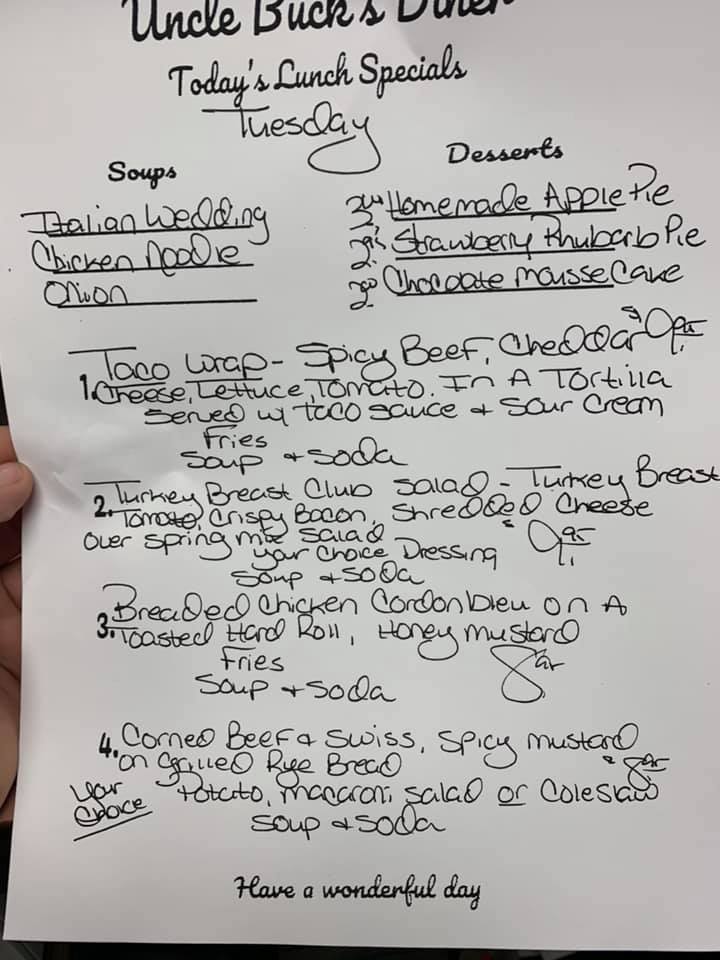 Uncle Buck's Diner
Today's Lunch Specials
Tuesday
Soups
Italian Wedding
Chicken Noodle
Onion
Desserts
Homemade Apple Pie
Strawberry Rhubarb Pie
Chocoate Mousse Cake
Taco Wrap - Spicy Beef, Cheddar $9.95
1. Cheese, Lettuce, Tomato. In A Tortilla
Served w/ Taco Sauce & Sour Cream
Fries
Soup & Soda
2. Turkey Breast Club Salad - Turkey Breast
Tomato, Crispy Bacon, Shredded Cheese
Over Spring Mix Salad
Your Choice Dressing $9.95
Soup & Soda
3. Breaded Chicken Cordon bleu on A
Toasted Hard Roll, Honey Mustard
Fries
Soup & Soda
4. Corned Beef & Swiss, Spicy Mustard
on Grilled Rye Bread
Your Choice Potato, Macaroni Salad or Coleslaw
Soup & Soda
Have a wonderful day